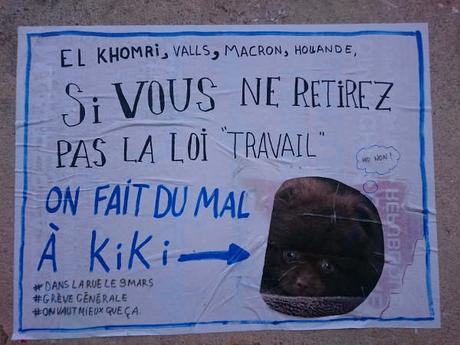 EL KHOMRI, VALLS, MACRON, HOLLANDE,
SI VOUS NE RETIREZ
PAS LA LOI "TRAVAIL"
ON FAIT DU MAL
À KIKI
HO NON!
#DANS LA RUE LE 9 MARS
#GRÈVE GÉNÉRALE
#ON VAUT MIEUX QUE ÇA.